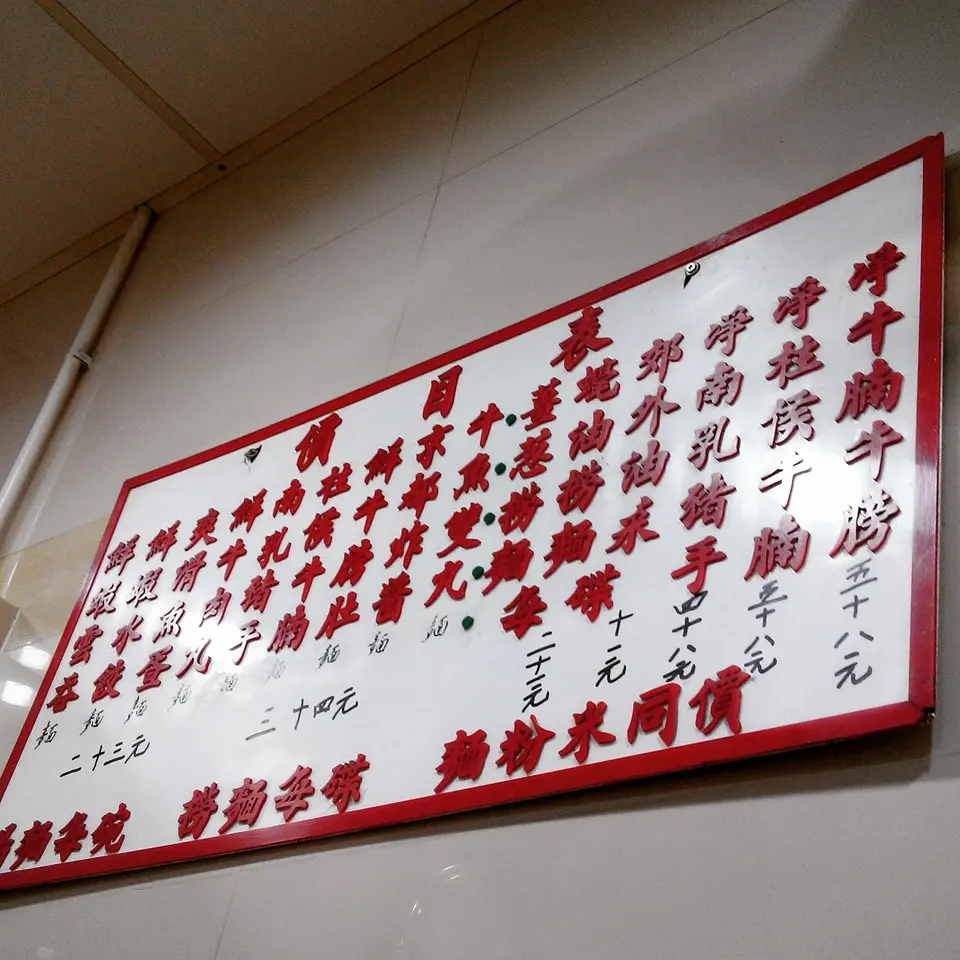 價目表
淨牛腩牛膀 五十八元
淨柱侯牛腩 五十八元
淨南乳豬手 四十八元
郊外油菜
蠔油撈麵碟
薑葱撈麵每 二十三元
牛魚雙丸麵
京都炸醬麵
鮮牛膀肚麵
柱侯牛腩麵
南乳豬手麵
鮮牛肉丸麵
爽滑魚蛋麵
鮮蝦水餃麵
鮮蝦雲吞麵
二十三元
二十四元
湯麵每碗 撈麵每碟 麵粉米同價